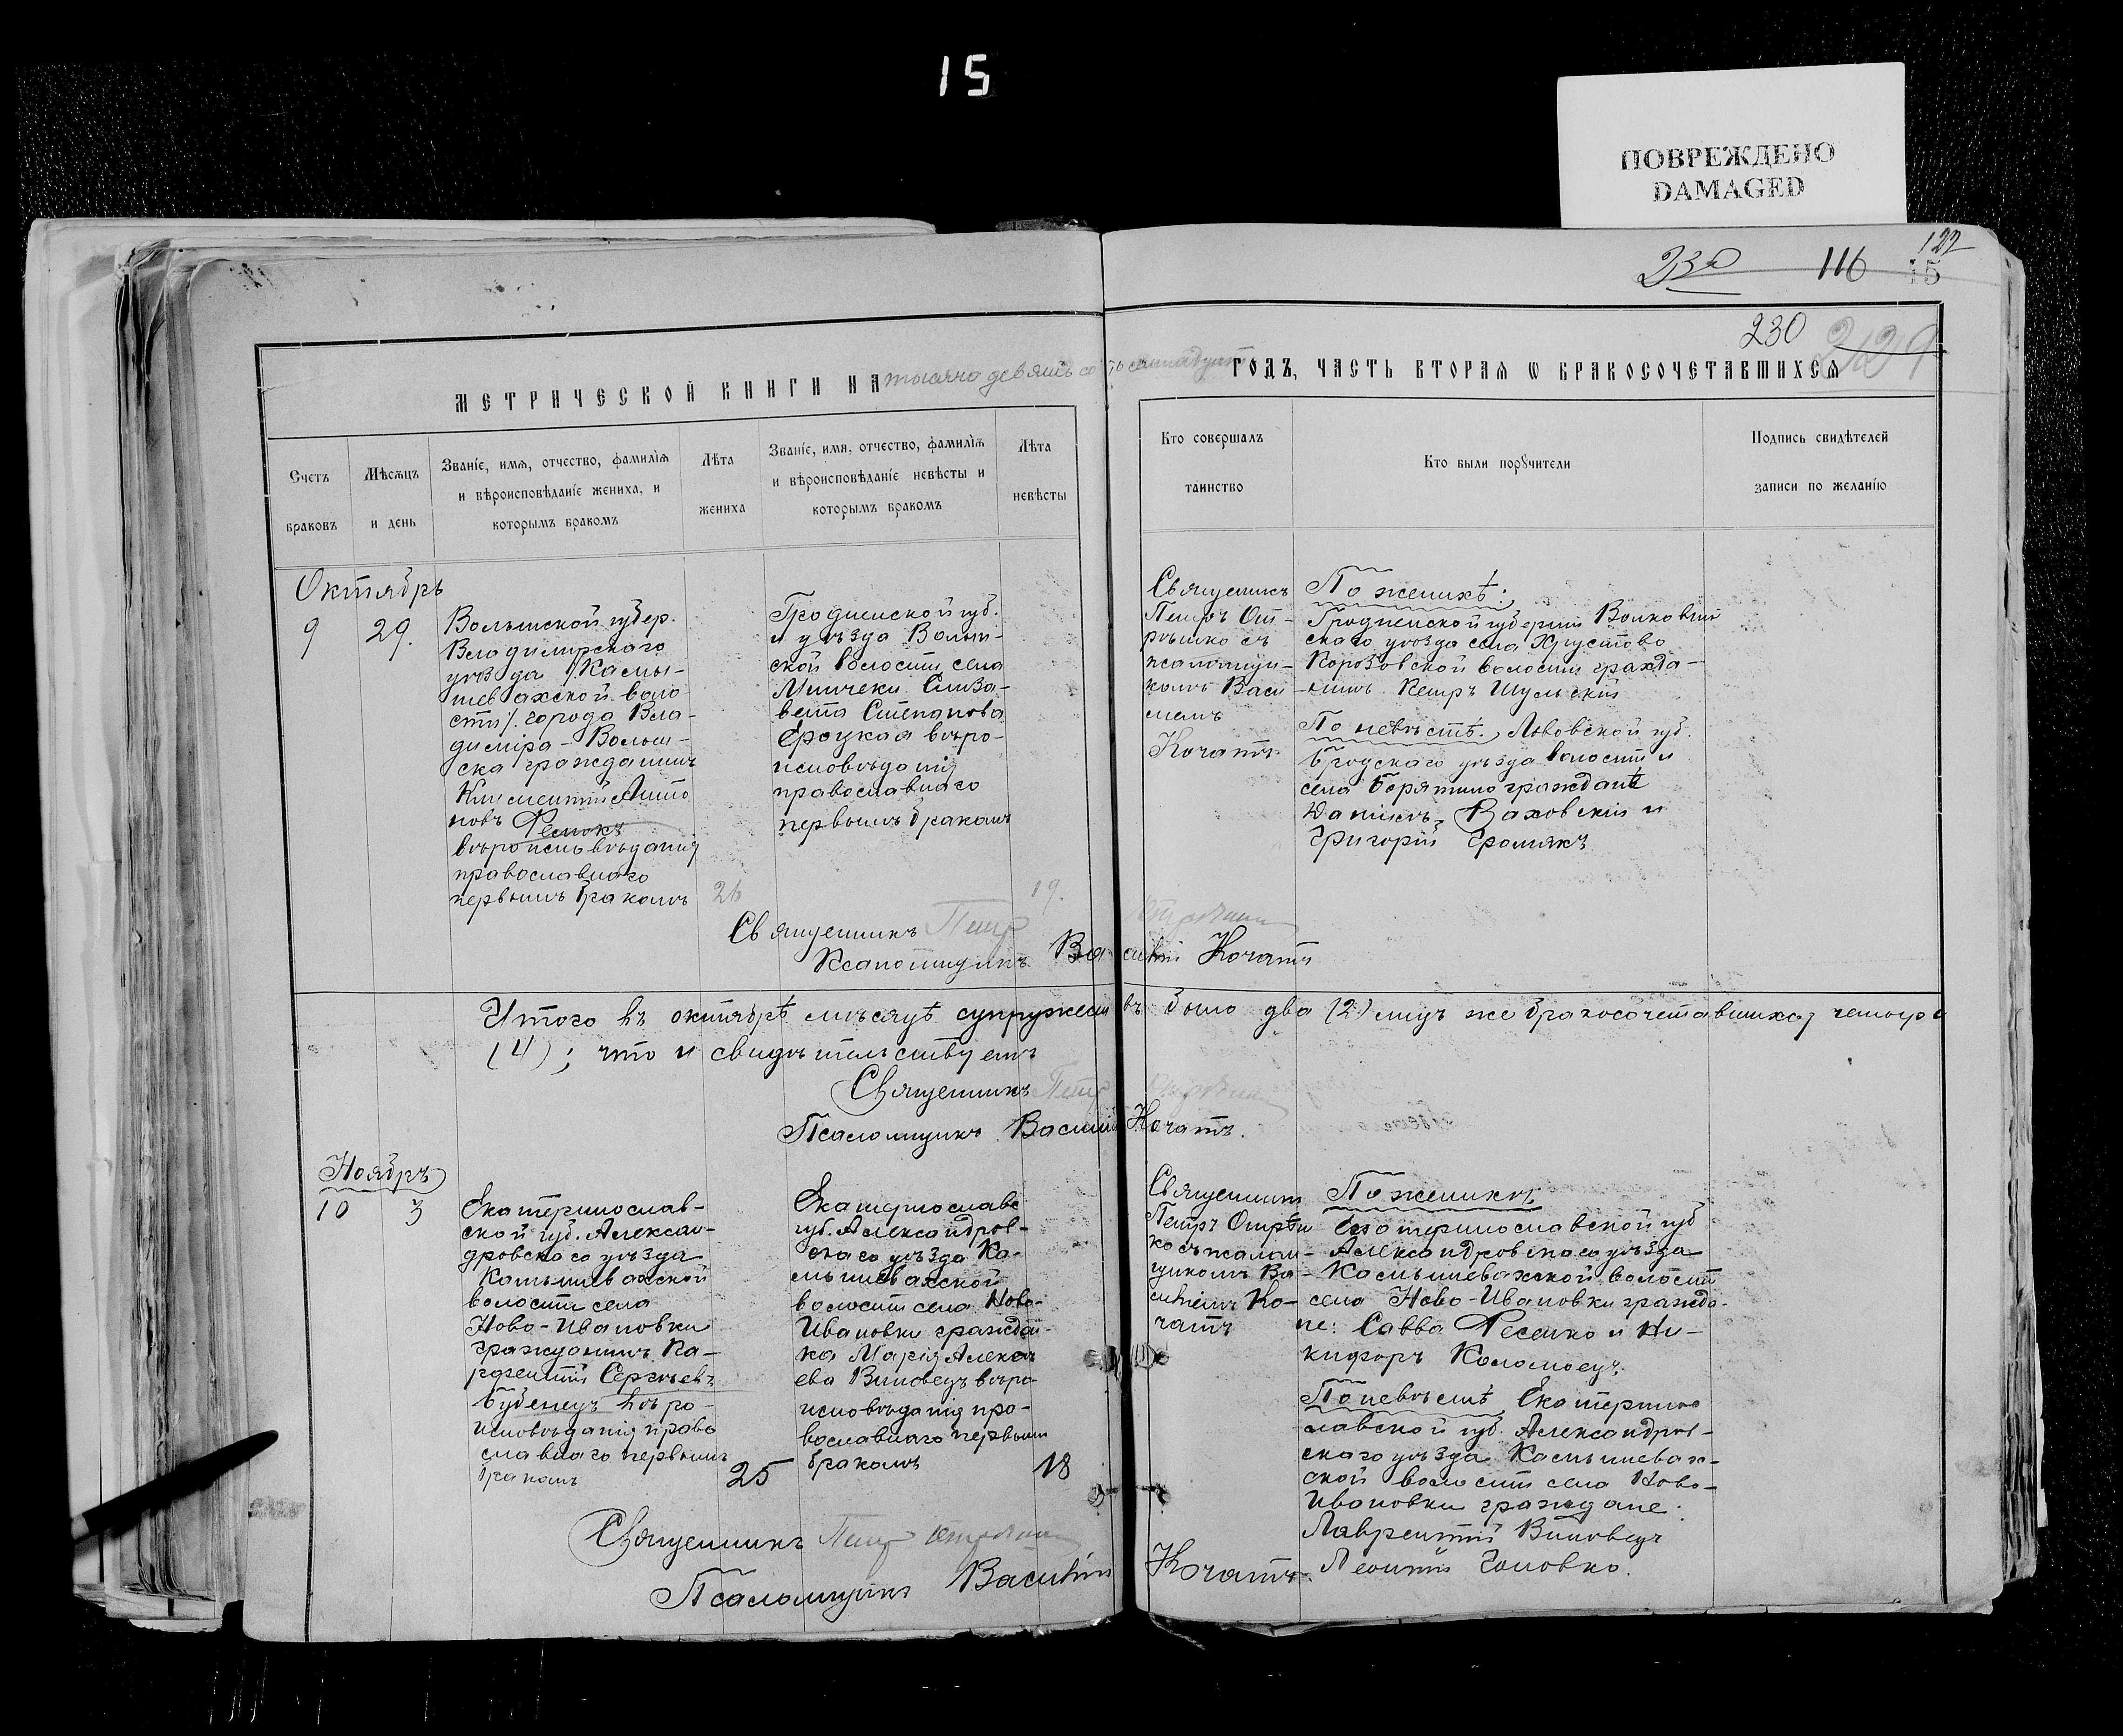 15
ПОВРЕЖДЕНО
DAMAGED
230
116
122
15
230
229
МЕТРИЧЕСКОЙ КНИГИ НА тысяча девятьсотъ ГОДЪ, ЧАСТЬ ВТОРАЯ Ѡ БРАКОСОЧЕТАВШИХСЯ
Счетъ браковъ
Мѣсяцъ и день
Званіе, имя, отчество, фамилія
и вѣроисповѣданіе жениха, и
которымъ бракомъ
Лѣта жениха
Званіе, имя, отчество, фамилія
и вѣроисповѣданіе невѣсты и
которымъ бракомъ
Лѣта невѣсты
Кто совершалъ
таинство
Кто были поручители
Подпись свидѣтелей
записи по желанію
Октябрь
9
29.
Волынской губер.
Владимірскаго
уѣзда /Камы-
шевахской воло
сти/ города Вла-
диміра-Волын-
ска гражданинъ
Климентій Анто
новъ
вѣроисповѣданія
православнаго
первымъ бракомъ
26
Гродненской губ.
и уѣзда Волпи-
ской волости, села
Елиза-
вета Степанова
вѣро-
исповѣданія
православнаго
первымъ бракомъ
19.
Священникъ
Петръ От-
рѣшко съ
псаломщи-
комъ Васи-
ліемъ
Кочатъ
По женихѣ:
Гродненской губерніи Волковый
скаго уѣзда села Хрустово
волости гражда-
нинъ Петръ Шульскій
По невѣстѣ. Львовской губ.
Бродскаго уѣзда волости и
села Борятино граждане
Ваховскій и
Григорій Громякъ
Священникъ Петръ Отрѣшко
Псаломщикъ Василій Кочатъ
Итого въ октябрѣ мѣсяцѣ супружествъ было два (2) лицъ же бракосочетавшихся четыре
(4); что и свидѣтельствуемъ
Священникъ Петръ Отрѣшко
Псаломщикъ Василій Кочатъ.
Ноябрь
10
3
Екатеринослав-
ской губ. Алексан-
дровскаго уѣзда
Камышевахской
волости села
Ново-Ивановки
гражданинъ Па-
рфентій Сергѣевъ
Буденецъ вѣро-
исповѣданія право
славнаго первымъ
бракомъ
25
Екатеринославс
губ. Александров-
скаго уѣзда Ка-
мышевахской
волости села Ново-
Ивановки граждан-
ка Марія Алексѣ
ева Виновецъ вѣро-
исповѣданія пра-
вославнаго первымъ
бракомъ
18
Священникъ
Петръ Отрѣш
ко съ псалом-
щикомъ Ва-
силіемъ Ко-
чатъ
По женихѣ:
Екатеринославской губ
Александровскаго уѣзда
Камышевахской волости
села Ново-Ивановки гражда-
не: Савва Фесенко и Ни-
кифоръ Коломоецъ.
По невѣстѣ Екатерино
славской губ. Александров-
скаго уѣзда Камышевах-
ской волости села Ново-
Ивановки граждане:
Лаврентій Виновецъ
Леонтій Головко.
Священникъ Петръ Отрѣшко
Псаломщикъ Василій Кочатъ.